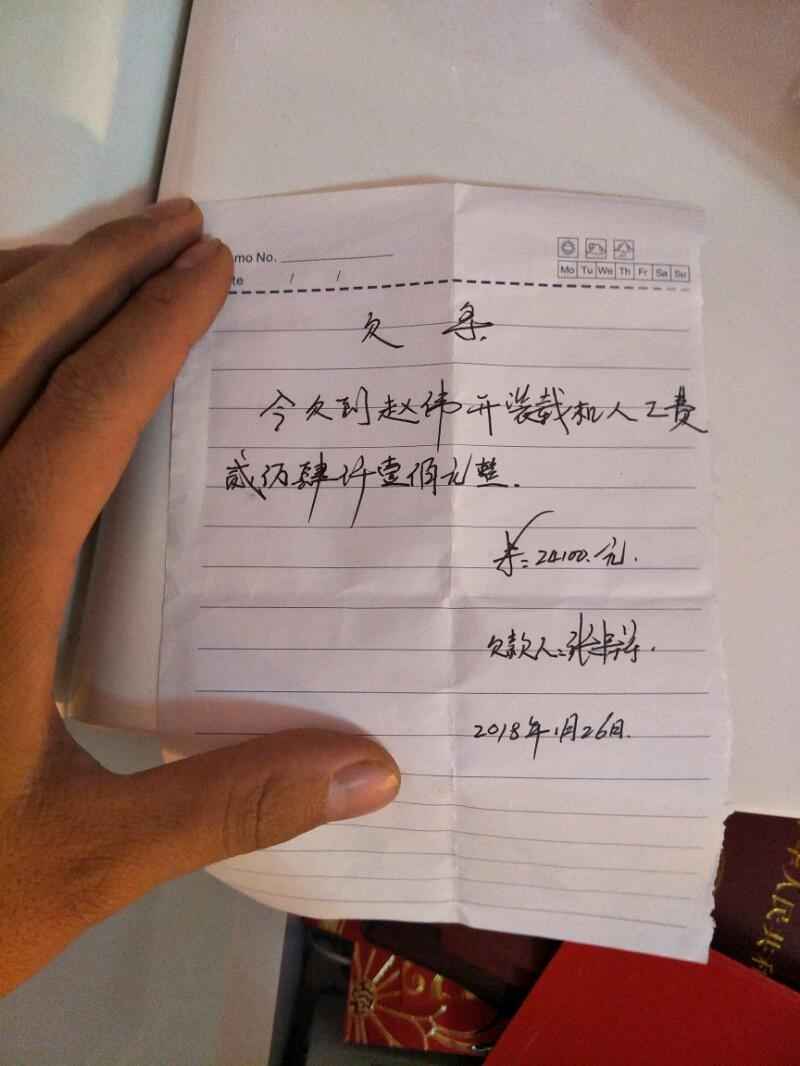 mo No.
te / /
Mo Tu We Th Fr Sa Su
欠条.
今欠到赵伟开装载机人工费
贰仟肆仟壹佰元整.
¥:24100.元.
欠款人:张
2018年1月26日.
人民共和